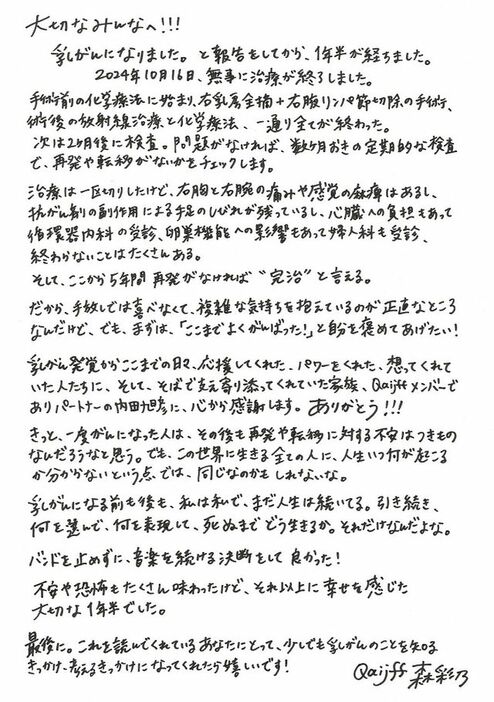 大切なみんなへ!!!
乳がんになりました。と報告をしてから、1年半が経ちました。
2024年10月16日、無事に治療が終了しました。
手術前の化学療法に始まり、右乳房全摘+右腋リンパ節切除の手術、
術後の放射線治療と化学療法、一通り全てが終わった。
次は2ヶ月後に検査。問題がなければ、数ヶ月おきの定期的な検査
で、再発や転移がないかをチェックします。
治療は一区切りしたけど、右胸と右腕の痛みや感覚の麻痺はあるし、
抗がん剤の副作用による手足のしびれが残っているし、心臓への負担もあって
循環器内科の受診、卵巣機能への影響もあって婦人科も受診、
終わらないことはたくさんある。
そして、ここから5年間再発がなければ“完治”と言える。
だから、手放しでは喜べなくて、複雑な気持ちを抱えているのが正直なところ
なんだけど、でも、まずは、「ここまでよくがんばった!」と自分を褒めてあげたい!
乳がん発覚からここまでの日々、応援してくれた、パワーをくれた、想ってくれて
いた人たちに、そして、そばで支え寄り添ってくれていた家族、Qaijffメンバーで
ありパートナーの内田旭彦に、心から感謝します。ありがとう!!!
きっと、一度がんになった人は、その後も再発や転移に対する不安はつきもの
なんだろうなと思う。でも、この世界に生きる全ての人に、人生いつ何が起こる
か分からないという点では、同じなのかもしれないな。
乳がんになる前も後も、私は私で、まだ人生は続いてる。引き続き、
何を選んで、何を表現して、死ぬまでどう生きるか。それだけなんだよな。
バンドを止めずに、音楽を続ける決断をして良かった!
不安や恐怖もたくさん味わったけど、それ以上に幸せを感じた
大切な1年半でした。
最後に。これを読んでくれているあなたにとって、少しでも乳がんのことを知る
きっかけ、考えるきっかけになってくれたら嬉しいです!
Qaijff 森彩乃